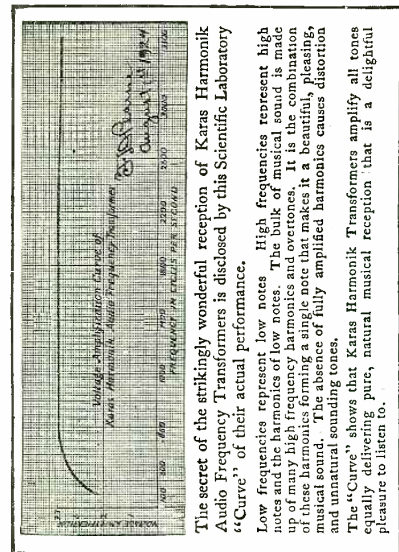 Voltage Amplification Curve of
Karas Harmonik Audio Frequency Transformer
August 11 1924
FREQUENCY IN CYCLES PER SECOND
VOLTAGE AMPLIFICATION
The secret of the strikingly wonderful reception of Karas Harmonik
Audio Frequency Transformers is disclosed by this Scientific Laboratory
“Curve” of their actual performance.
Low frequencies represent low notes High frequencies represent high
notes and the harmonics of low notes. The bulk of musical sound is made
up of many high frequency harmonics and overtones. It is the combination
of these harmonics forming a single note that makes it a beautiful, pleasing,
musical sound. The absence of fully amplified harmonics causes distortion
and unnatural sounding tones.
The “Curve” shows that Karas Harmonik Transformers amplify all tones
equally delivering pure, natural musical reception that is a delightful
pleasure to listen to.